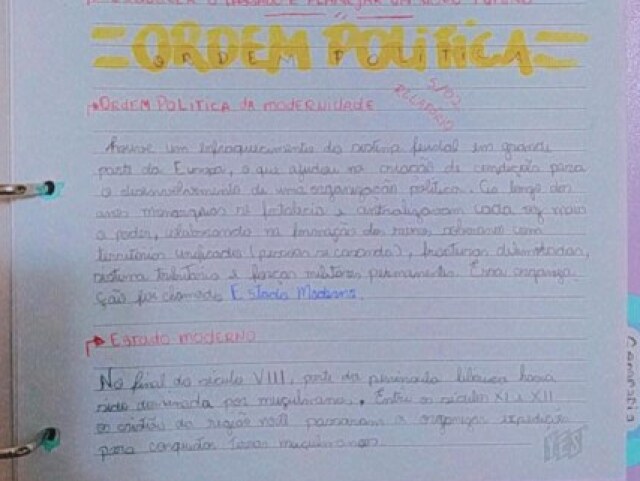 PLANEJAR UM NOVO FUTURO
=ORDEM POLÍTICA=
ORDEM POLÍTICA
5/02
RELATÓRIO
ORDEM POLITICA DA MODERNIDADE
houve um enfraquecimento do sistema feudal em grande
parte da Europa, o que ajudou na criação de condições para
o desenvolvimento de uma organização política. Ao longo dos
anos monarquias se e centralizavam cada vez mais
o poder, na formação dos com
territórios unificados ( ), fronteiras delimitadas,
sistema tributário e forças militares permanentes. Essa organiza
ção foi chamada Estado Moderno.
Estado moderno
No final do século VIII, parte da península havia
sido dominada por muçulmanos. Entre os séculos XI e XII
os cristãos da região passaram a organizar
para conquistar terras muçulmanas.